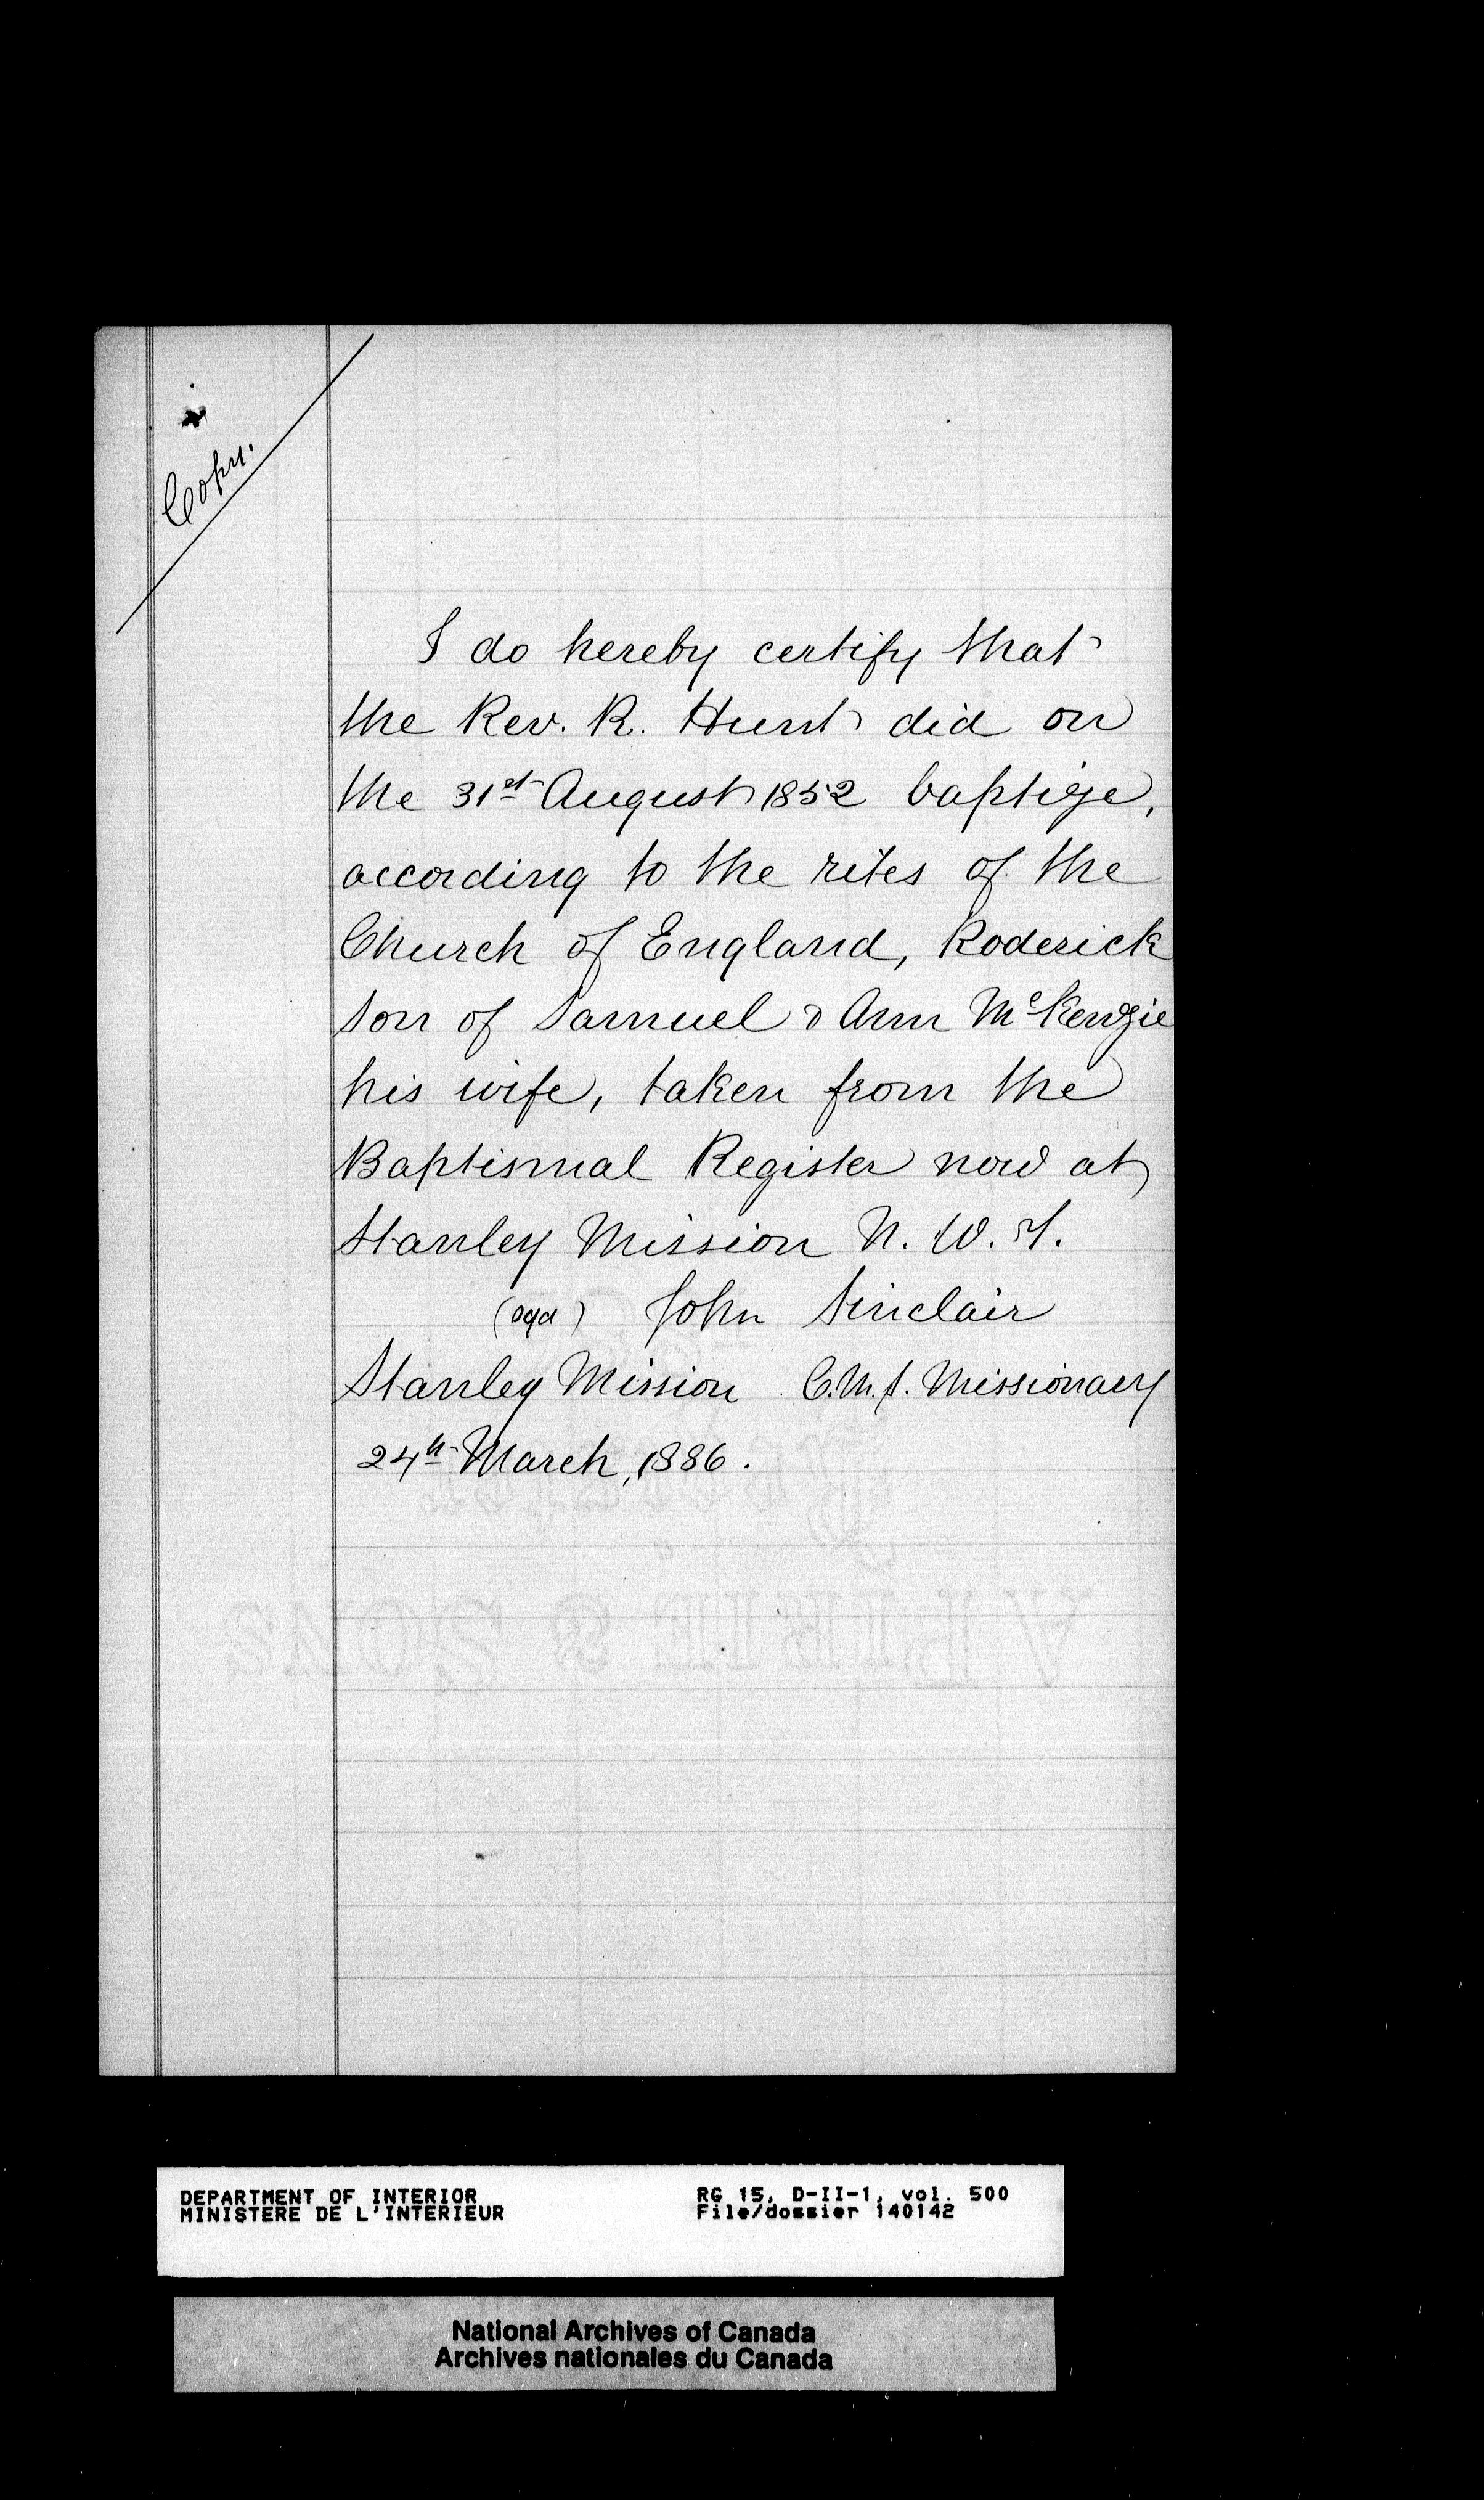 Copy.
I do hereby certify that
the Rev. R. Hunt did on
the 31st August 1852 baptize,
according to the rites of the
Church of England, Roderick
son of Samuel & Ann McKenzie
his wife, taken from the
Baptismal Register now at
Stanley Mission N. W. T.
(sgd) John Sinclair
Stanley Mission C.M.S. Missionary
24th March, 1886.
DEPARTMENT OF INTERIOR RG 15, D-II-1, vol. 500
MINISTERE DE L'INTERIEUR File/dossier 140142
National Archives of Canada
Archives nationales du Canada